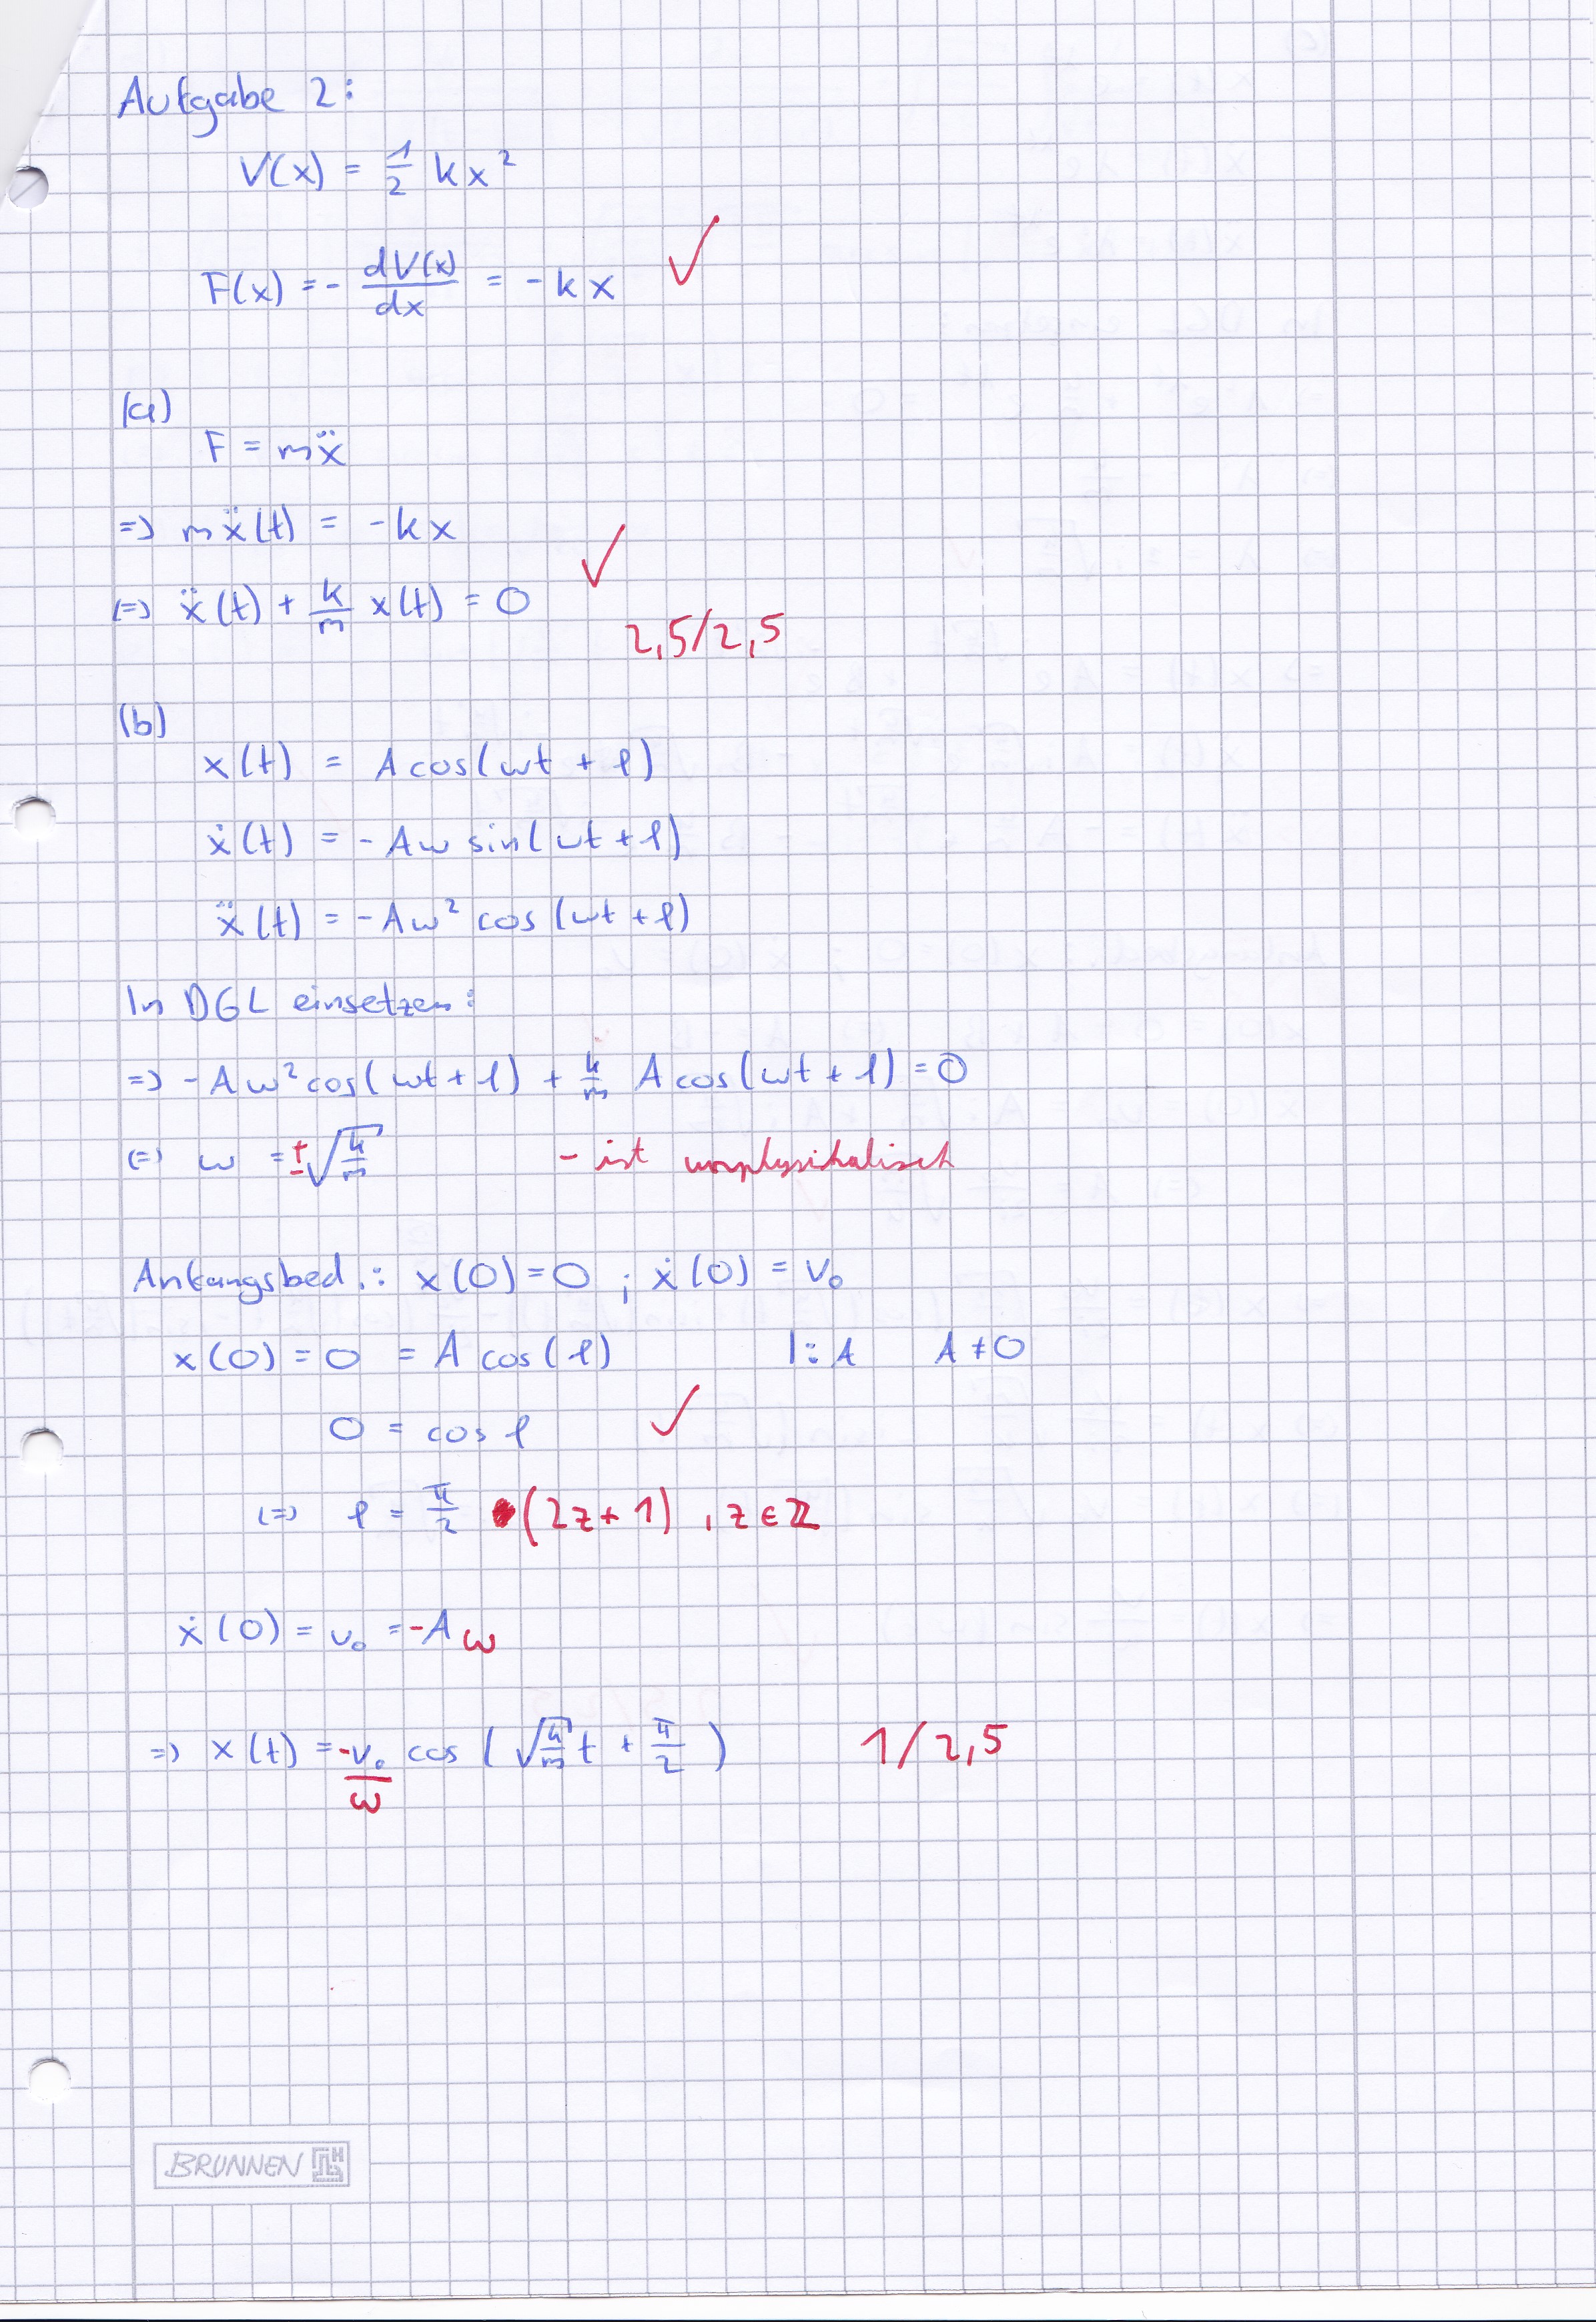 Aufgabe 2:
V(x) = 1/2 kx²
F(x) = - dV(x)/dx = -kx ✓
(a)
F = mẍ
=> mẍ(t) = -kx
<=> ẍ(t) + k/m x(t) = 0 ✓
2,5/2,5
(b)
x(t) = A cos(ωt + φ)
ẋ(t) = -Aω sin(ωt + φ)
ẍ(t) = -Aω² cos(ωt + φ)
In DGL einsetzen:
=> -Aω² cos(ωt + φ) + k/m A cos(ωt + φ) = 0
<=> ω = ±√(k/m) - ist unphysikalisch
Anfangsbed.: x(0) = 0 ; ẋ(0) = v₀
x(0) = 0 = A cos(φ) |:A A ≠ 0
0 = cos φ ✓
<=> φ = π/2 •(2z+1) , z ∈ ℤ
ẋ(0) = v₀ = -Aω
=> x(t) = -v₀/ω cos(√(k/m) t + π/2) 1/2,5
BRUNNEN